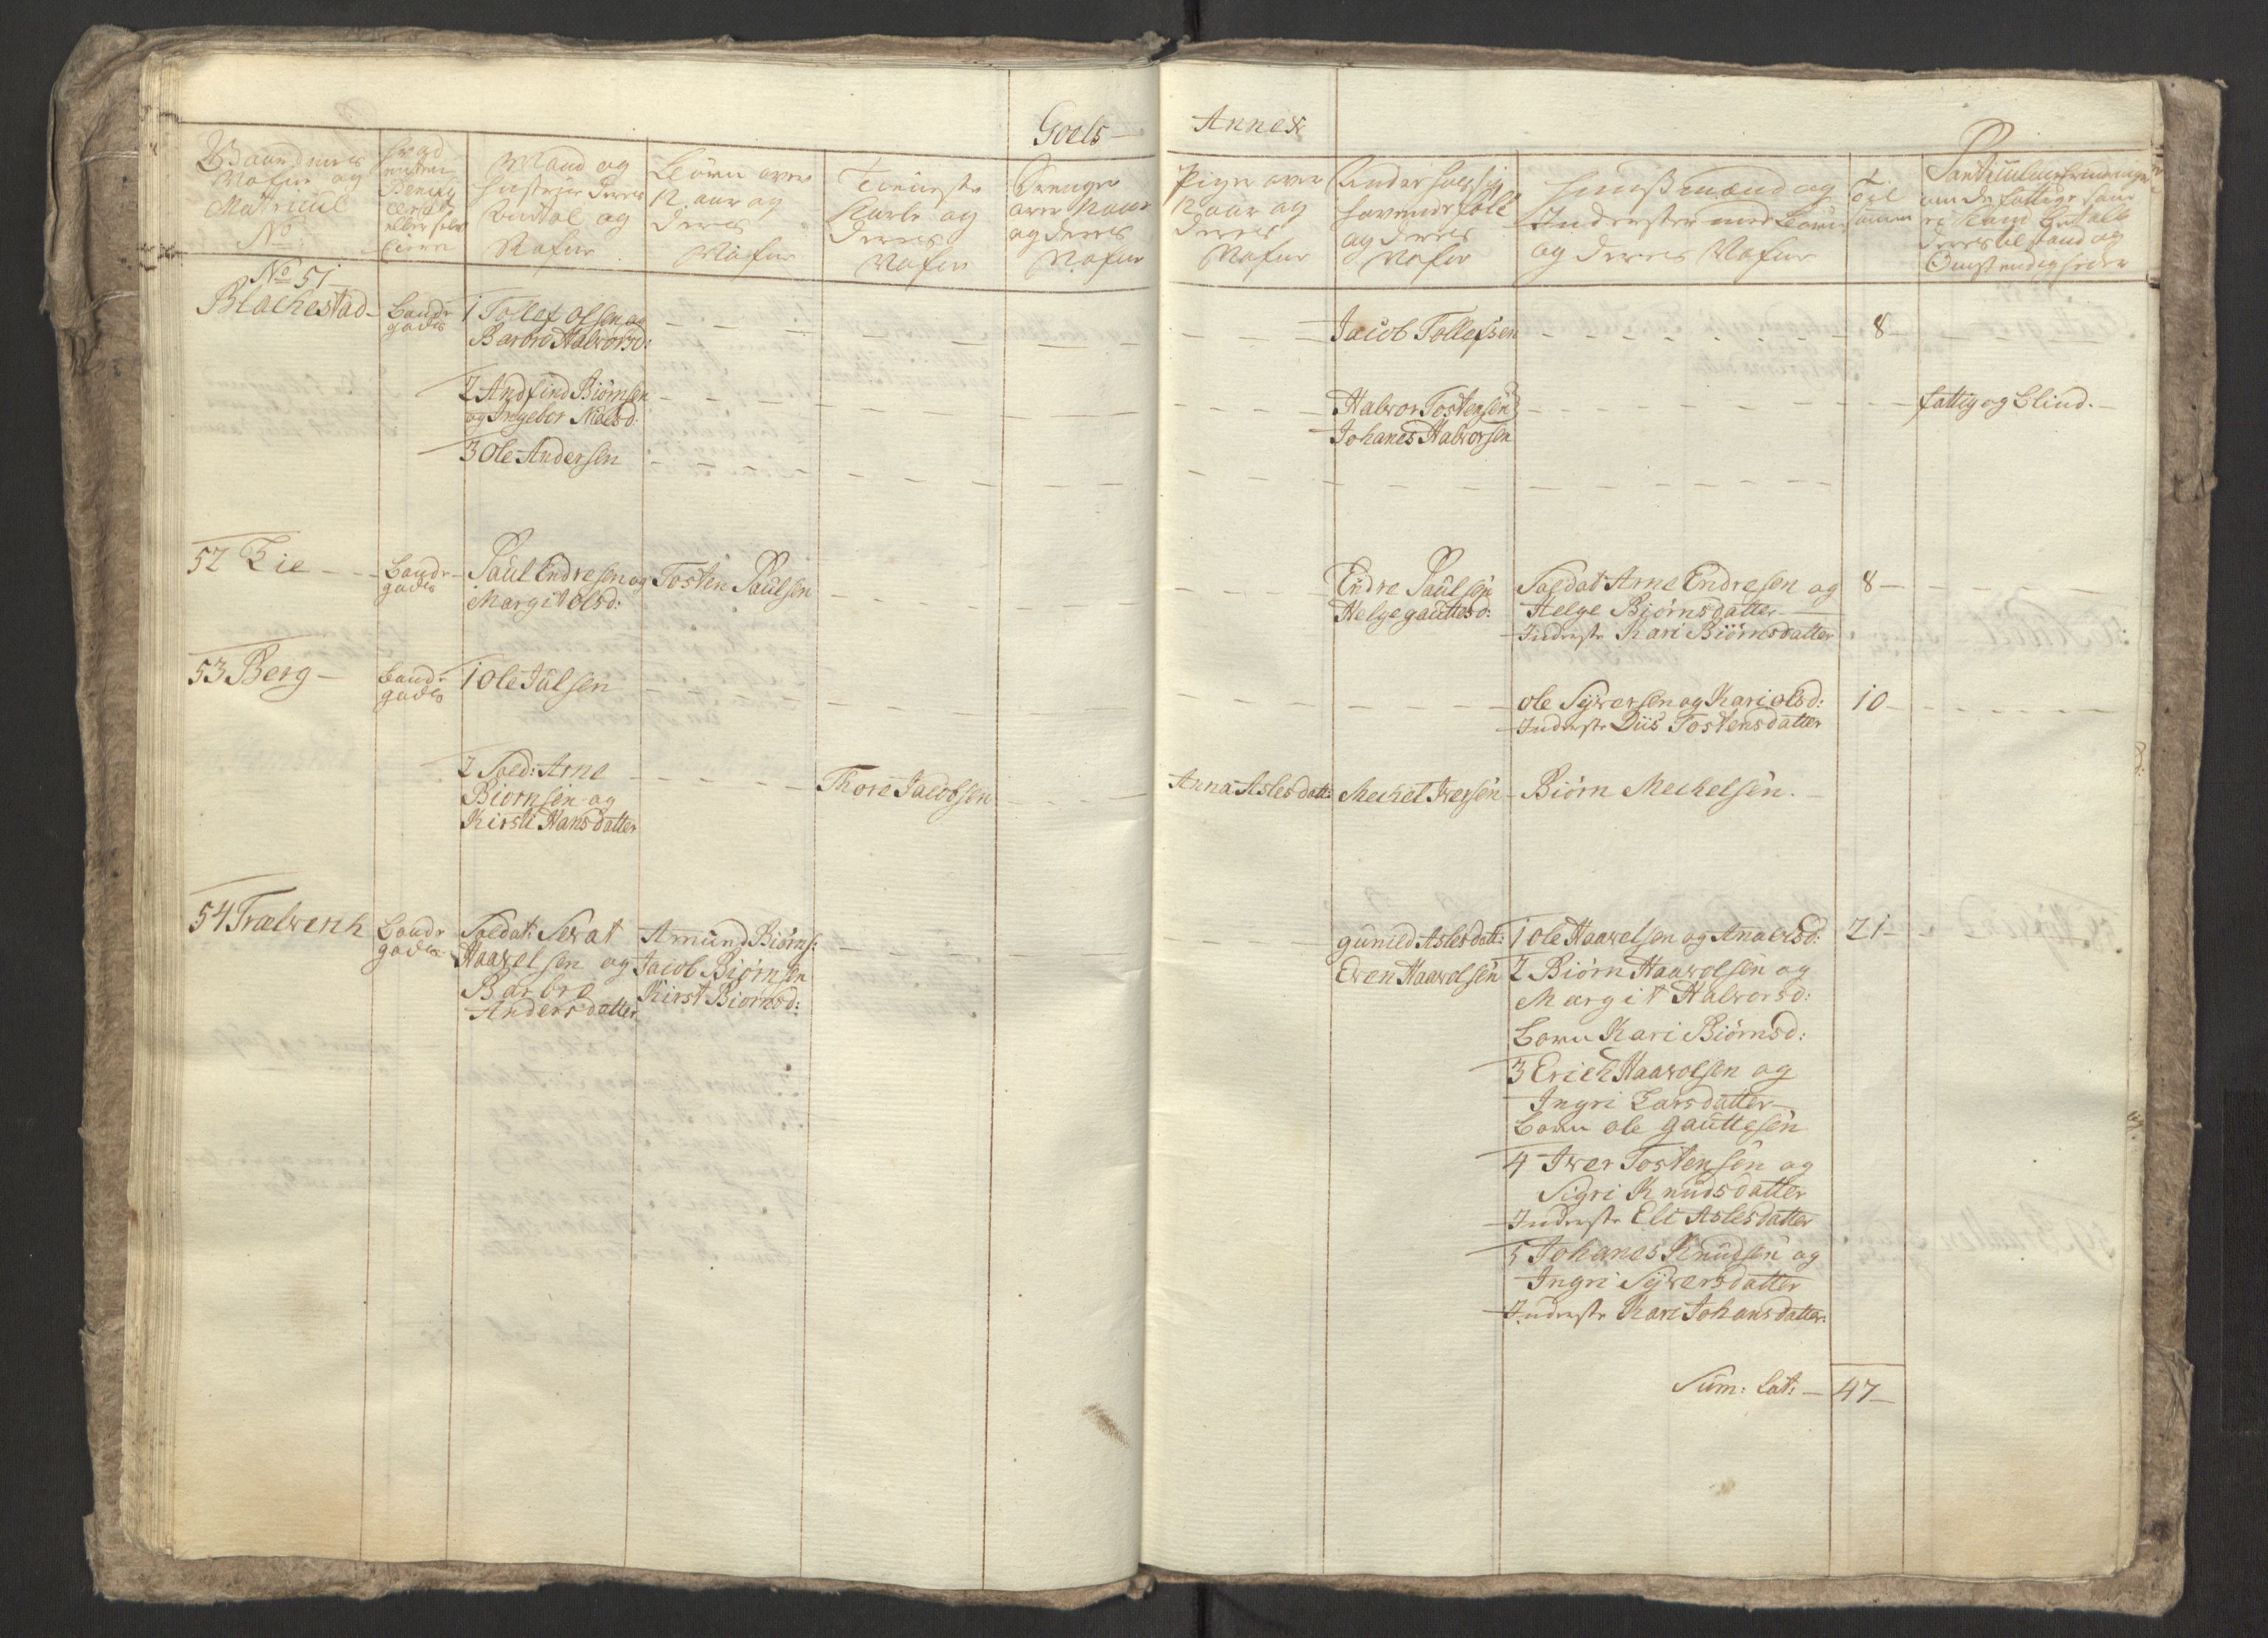 Goels Annex
Gaardenes
Nafne og
Matricul
No
Mand og
Hustrue deres
Antal og
Nafne
Børn over
12 aar og
deres
Nafne
Tieniste
Karle og
deres
Nafne
Drenge
over 12 aar
og deres
Nafne
Piger over
12 aar og
deres
Nafne
havende folk
og deres
Nafne
Huusmænd og
Inderster med Børn
og deres Nafne
Til
sammen
om de fattige som
deres tilstand og
Omstendigheder
No 51
Blachestad
Bonde
gods
1 Tollef Olsen og
Barbro Halvorsd:
Jacob Tollefsen
8
2 Andfind Biørnsen
og Ingebor Nielsd:
Halvor Tostensen
Johanes Halvorsen
fattig og blind.
3 Ole Andersen
52 Lie
Bonde
gods
Paul Endresen og
Margit Olsd:
Tosten Paulsen
Endre Paulsen
Helge gauttesd:
Soldat Arne Endresen og
Helge Biørnsdatter
Inderste Kari Biørnsdatter
8
53 Berg
Bonde
gods
1 Ole Julsen
Ole Syversen og Kari Olsd:
Inderste Liis Tostensdatter
10
2 Sold: Arne
Biørnsen og
Kirsti Hansdatter
Thore Jacobsen
Anna Aslesdatt:
Mechel Iversen
Biørn Mechelsen.
54 Trælvenh
Bonde
gods
Soldat: Sevat
Haavelsen og
Barbro
Andersdatter
Amund Biørns:
Jacob Biørnsen
Kirst Biørnsd:
gunild Aslesdatt:
Even Haavolsen
1 Ole Haavelsen og Ana Olsd:
21
2 Biørn Haavolsen og
Margit Halvorsd:
Børn Kari Biørnsd:
3 Erich Haavolsen og
Ingri Larsdatter
Børn ole gauttesen
4 Iver Tostensen og
Sigri Knudsdatter
Inderste Eli Aslesdatter
5 Johanes Knudsen og
Ingri Syversdatter
Inderste Kari Johansdatter
Sum: Lat: 47